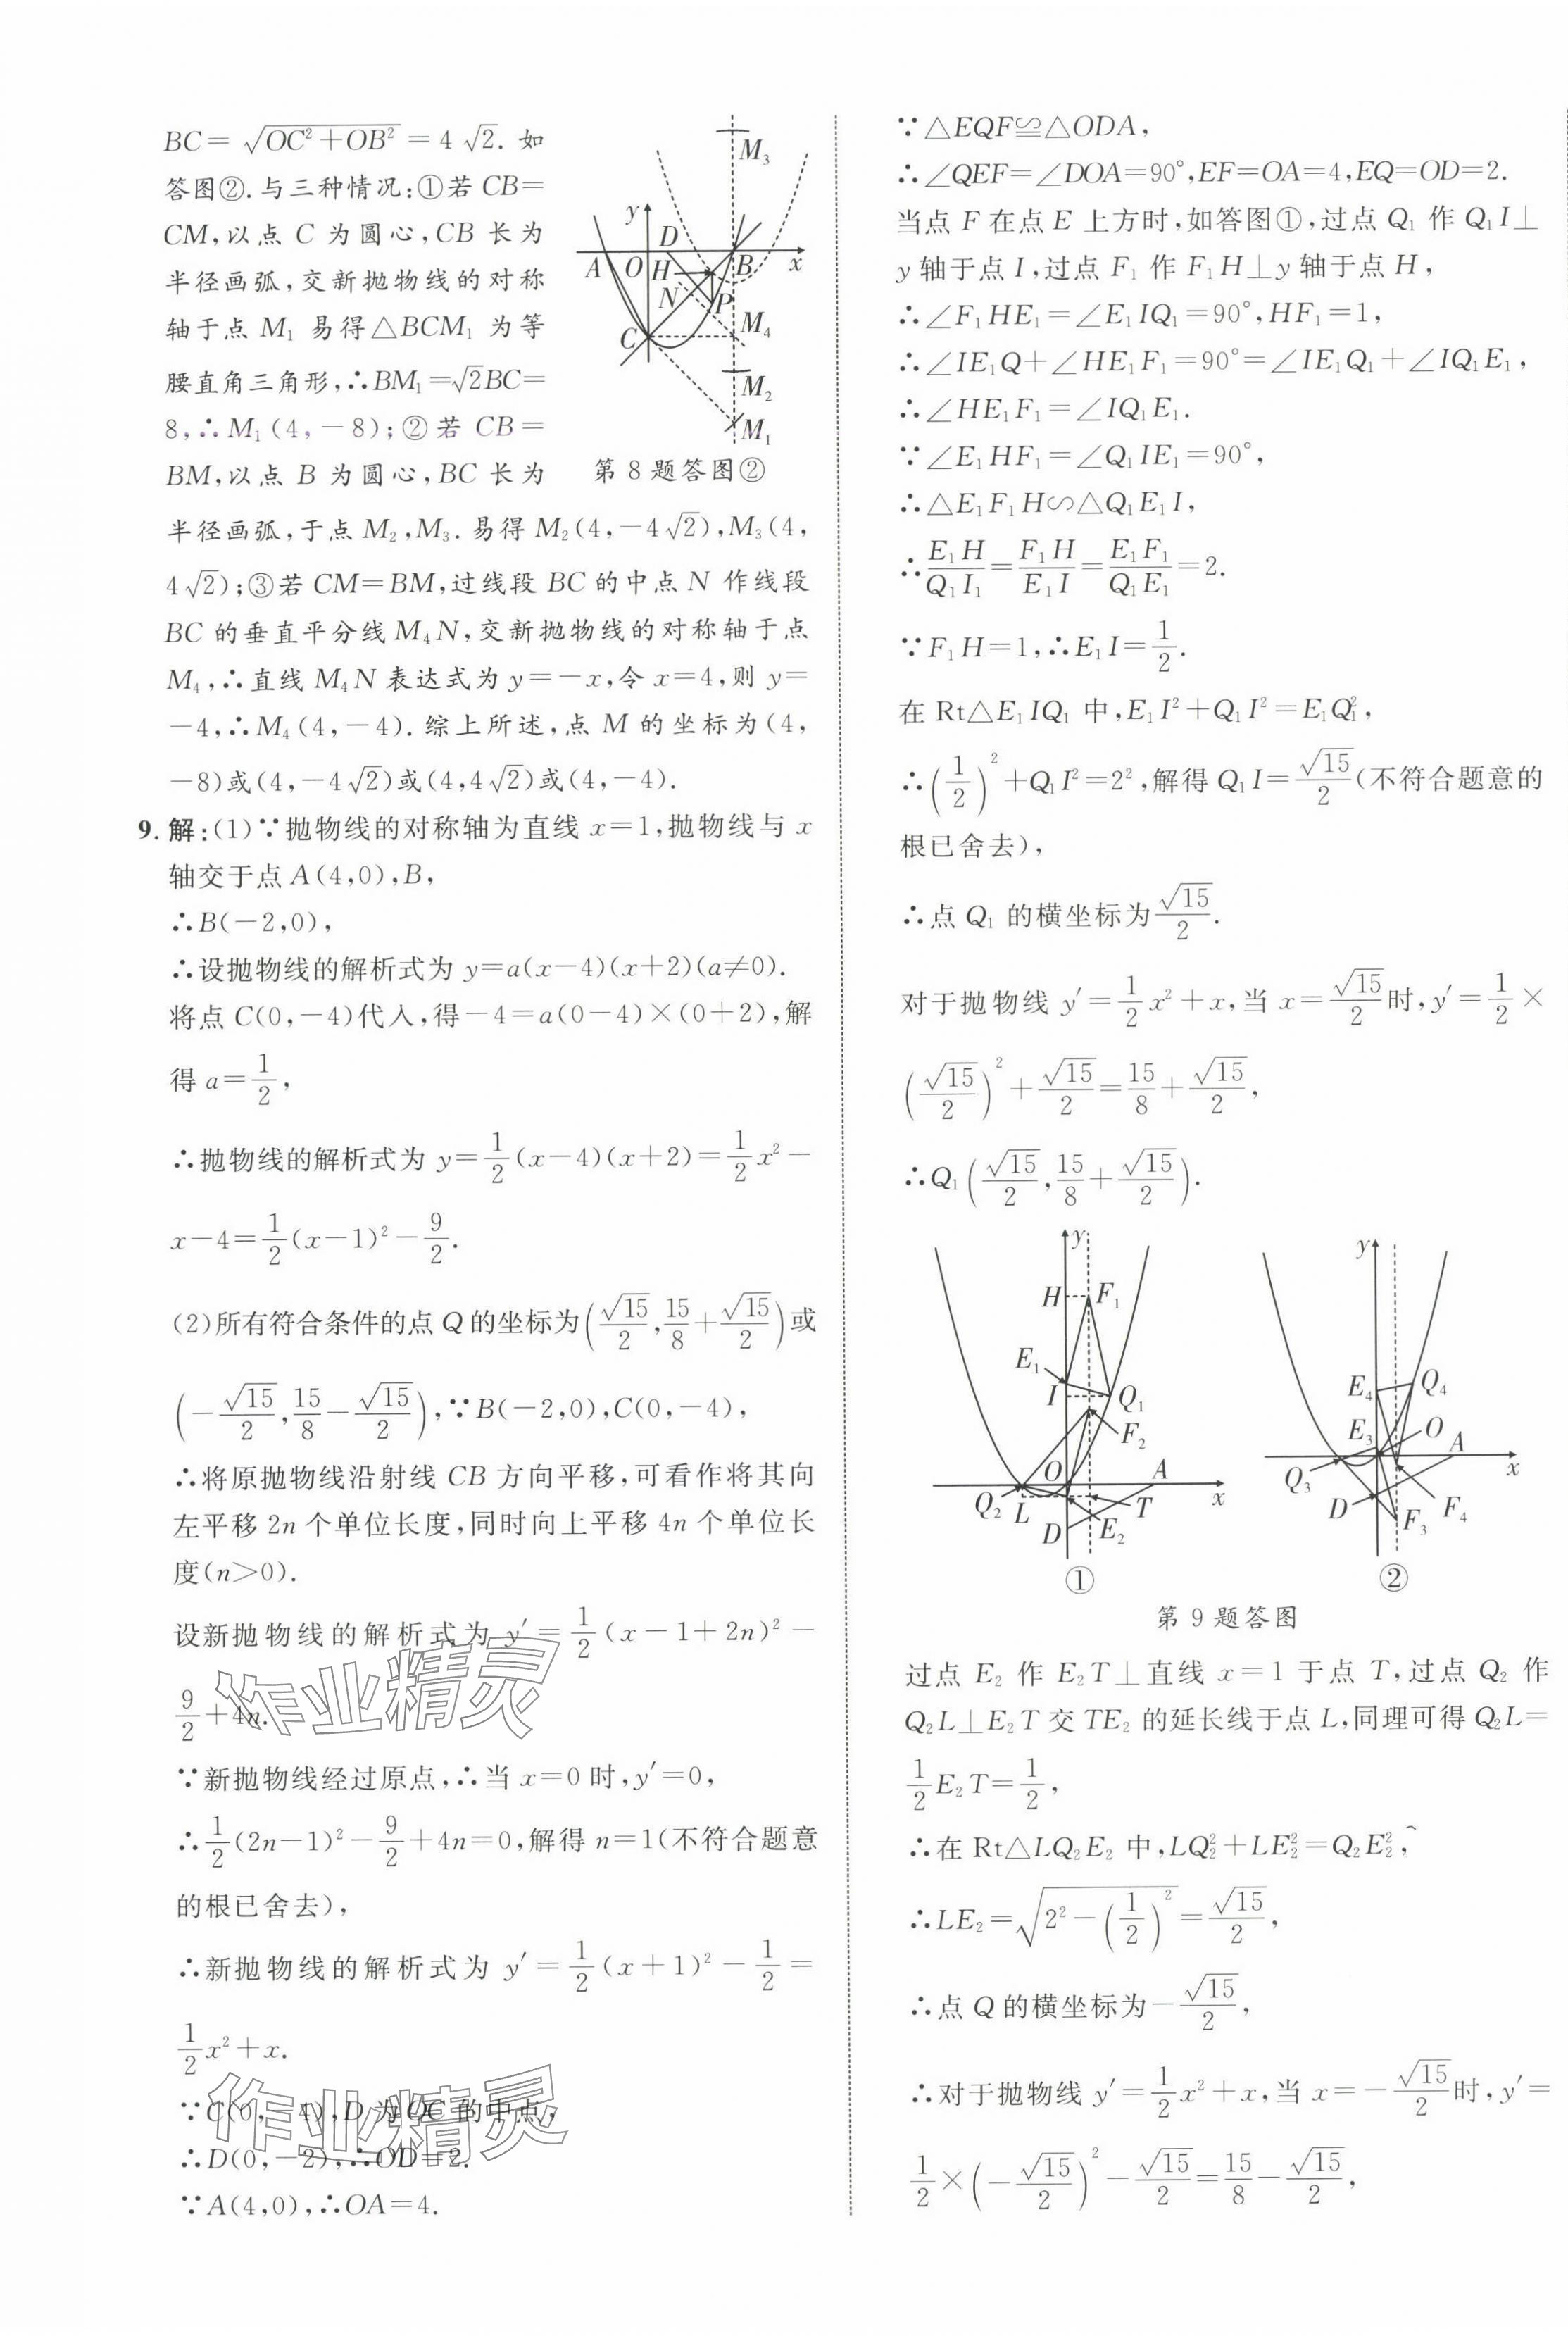 BC=√(OC²+OB²)=4√2. 如
答图②.与三种情况:①若CB=
CM,以点 C 为圆心,CB 长为
半径画弧,交新抛物线的对称
轴于点 M₁ 易得△BCM₁ 为等
腰直角三角形,∴BM₁=√2BC=
8,∴M₁(4,-8);②若 CB=
BM,以点 B 为圆心,BC 长为
半径画弧,于点 M₂,M₃.易得 M₂(4,-4√2),M₃(4,
4√2);③若CM=BM,过线段 BC 的中点 N 作线段
BC 的垂直平分线M₄N,交新抛物线的对称轴于点
M₄,∴直线 M₄N 表达式为 y=-x,令 x=4,则 y=
-4,∴M₄(4,-4).综上所述,点 M 的坐标为(4,
-8)或(4,-4√2)或(4,4√2)或(4,-4).
y
D
M₃
A
O
H
B
x
N
P
C
M₄
M₂
M₁
第8题答图②
9. 解:(1)∵抛物线的对称轴为直线 x=1,抛物线与 x
轴交于点A(4,0),B,
∴B(-2,0),
∴设抛物线的解析式为 y=a(x-4)(x+2)(a≠0).
将点C(0,-4)代入,得-4=a(0-4)×(0+2),解
得 a=1/2,
∴抛物线的解析式为 y=1/2(x-4)(x+2)=1/2x²-
x-4=1/2(x-1)²-9/2.
(2)所有符合条件的点Q的坐标为(√15/2,15/8+√15/2)或
(-√15/2,15/8-√15/2),∵B(-2,0),C(0,-4),
∴将原抛物线沿射线 CB 方向平移,可看作将其向
左平移 2n 个单位长度,同时向上平移 4n 个单位长
度(n>0).
设新抛物线的解析式为 y′=1/2(x-1+2n)²-
9/2+4n.
∵新抛物线经过原点,∴当 x=0时,y′=0,
∴1/2(2n-1)²-9/2+4n=0,解得 n=1(不符合题意
的根已舍去),
∴新抛物线的解析式为 y′=1/2(x+1)²-1/2=
1/2x²+x.
∵C(0,-4),D为OC的中点,
∴D(0,-2),∴OD=2.
∵A(4,0),∴OA=4.
作业精灵
作业精灵
∵△EQF≌△ODA,
∴∠QEF=∠DOA=90°,EF=OA=4,EQ=OD=2.
当点 F 在点 E 上方时,如答图①,过点 Q₁ 作 Q₁I⊥
y 轴于点 I,过点 F₁ 作 F₁H⊥y 轴于点 H,
∴∠F₁HE₁=∠E₁IQ₁=90°,HF₁=1,
∴∠IE₁Q+∠HE₁F₁=90°=∠IE₁Q₁+∠IQ₁E₁,
∴∠HE₁F₁=∠IQ₁E₁.
∵∠E₁HF₁=∠Q₁IE₁=90°,
∴△E₁F₁H∽△Q₁E₁I,
∴E₁H/Q₁I₁=F₁H/E₁I=E₁F₁/Q₁E₁=2.
∵F₁H=1,∴E₁I=1/2.
在 Rt△E₁IQ₁ 中,E₁I²+Q₁I²=E₁Q₁²,
∴(1/2)²+Q₁I²=2²,解得 Q₁I=√15/2(不符合题意的
根已舍去),
∴点 Q₁ 的横坐标为√15/2.
对于抛物线 y′=1/2x²+x,当 x=√15/2时,y′=1/2×
(√15/2)²+√15/2=15/8+√15/2,
∴Q₁(√15/2,15/8+√15/2).
y
H
F₁
E₁
I
Q₁
F₂
O
A
Q₂
L
T
x
D
E₂
①
y
E₄
Q₄
E₃
O
A
Q₃
x
D
F₃
F₄
②
第9题答图
过点 E₂ 作 E₂T⊥直线 x=1 于点 T,过点 Q₂ 作
Q₂L⊥E₂T 交 TE₂ 的延长线于点 L,同理可得 Q₂L=
1/2E₂T=1/2,
∴在 Rt△LQ₂E₂ 中,LQ₂²+LE₂²=Q₂E₂²,
∴LE₂=√(2²-(1/2)²)=√15/2,
∴点Q的横坐标为-√15/2,
∴对于抛物线 y′=1/2x²+x,当 x=-√15/2时,y′=
1/2×(-√15/2)²-√15/2=15/8-√15/2,